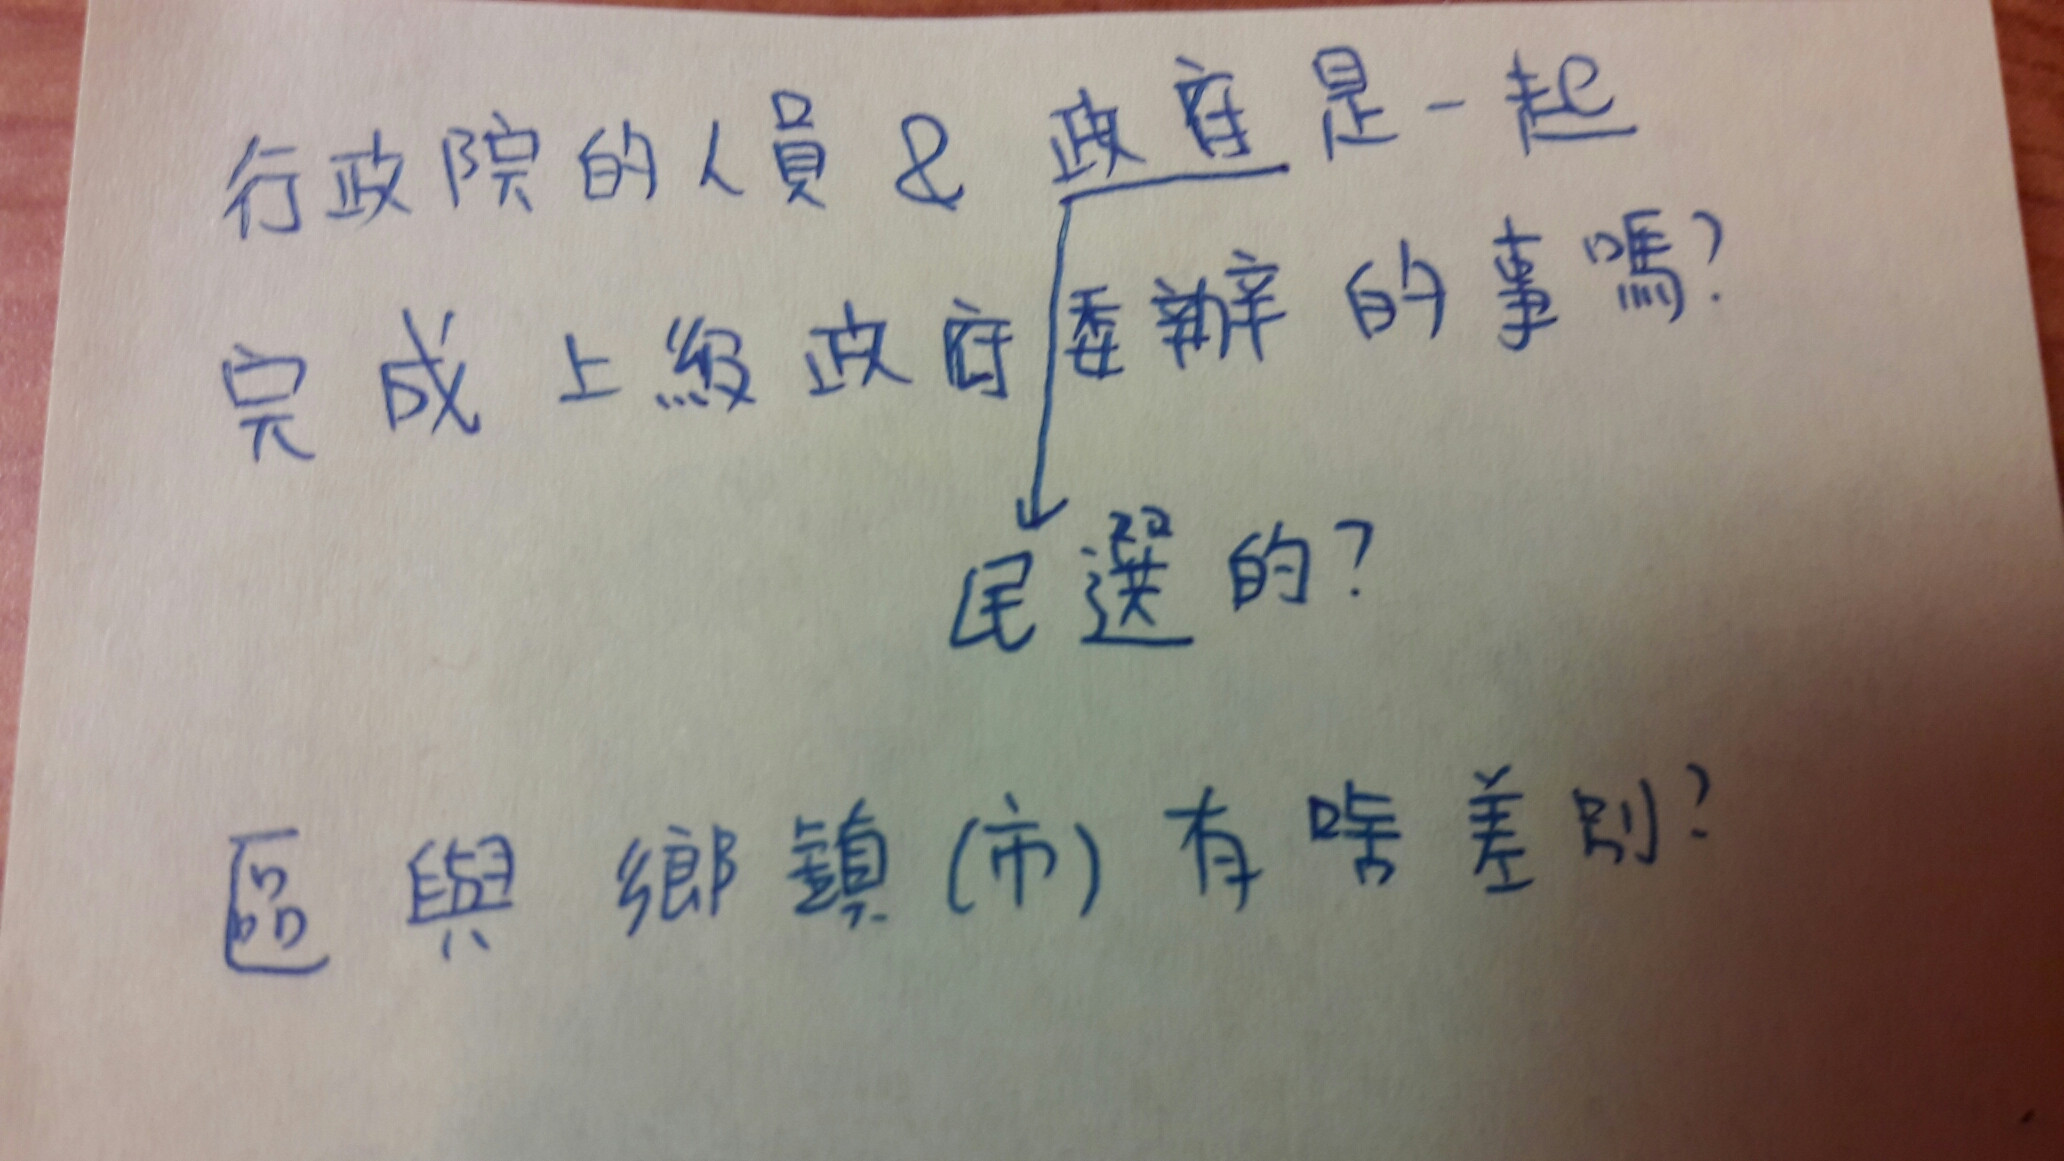 行政院的人員 & 政府是一起
完成上級政府委辦的事嗎?
民選的?
區與鄉鎮(市)有啥差別?